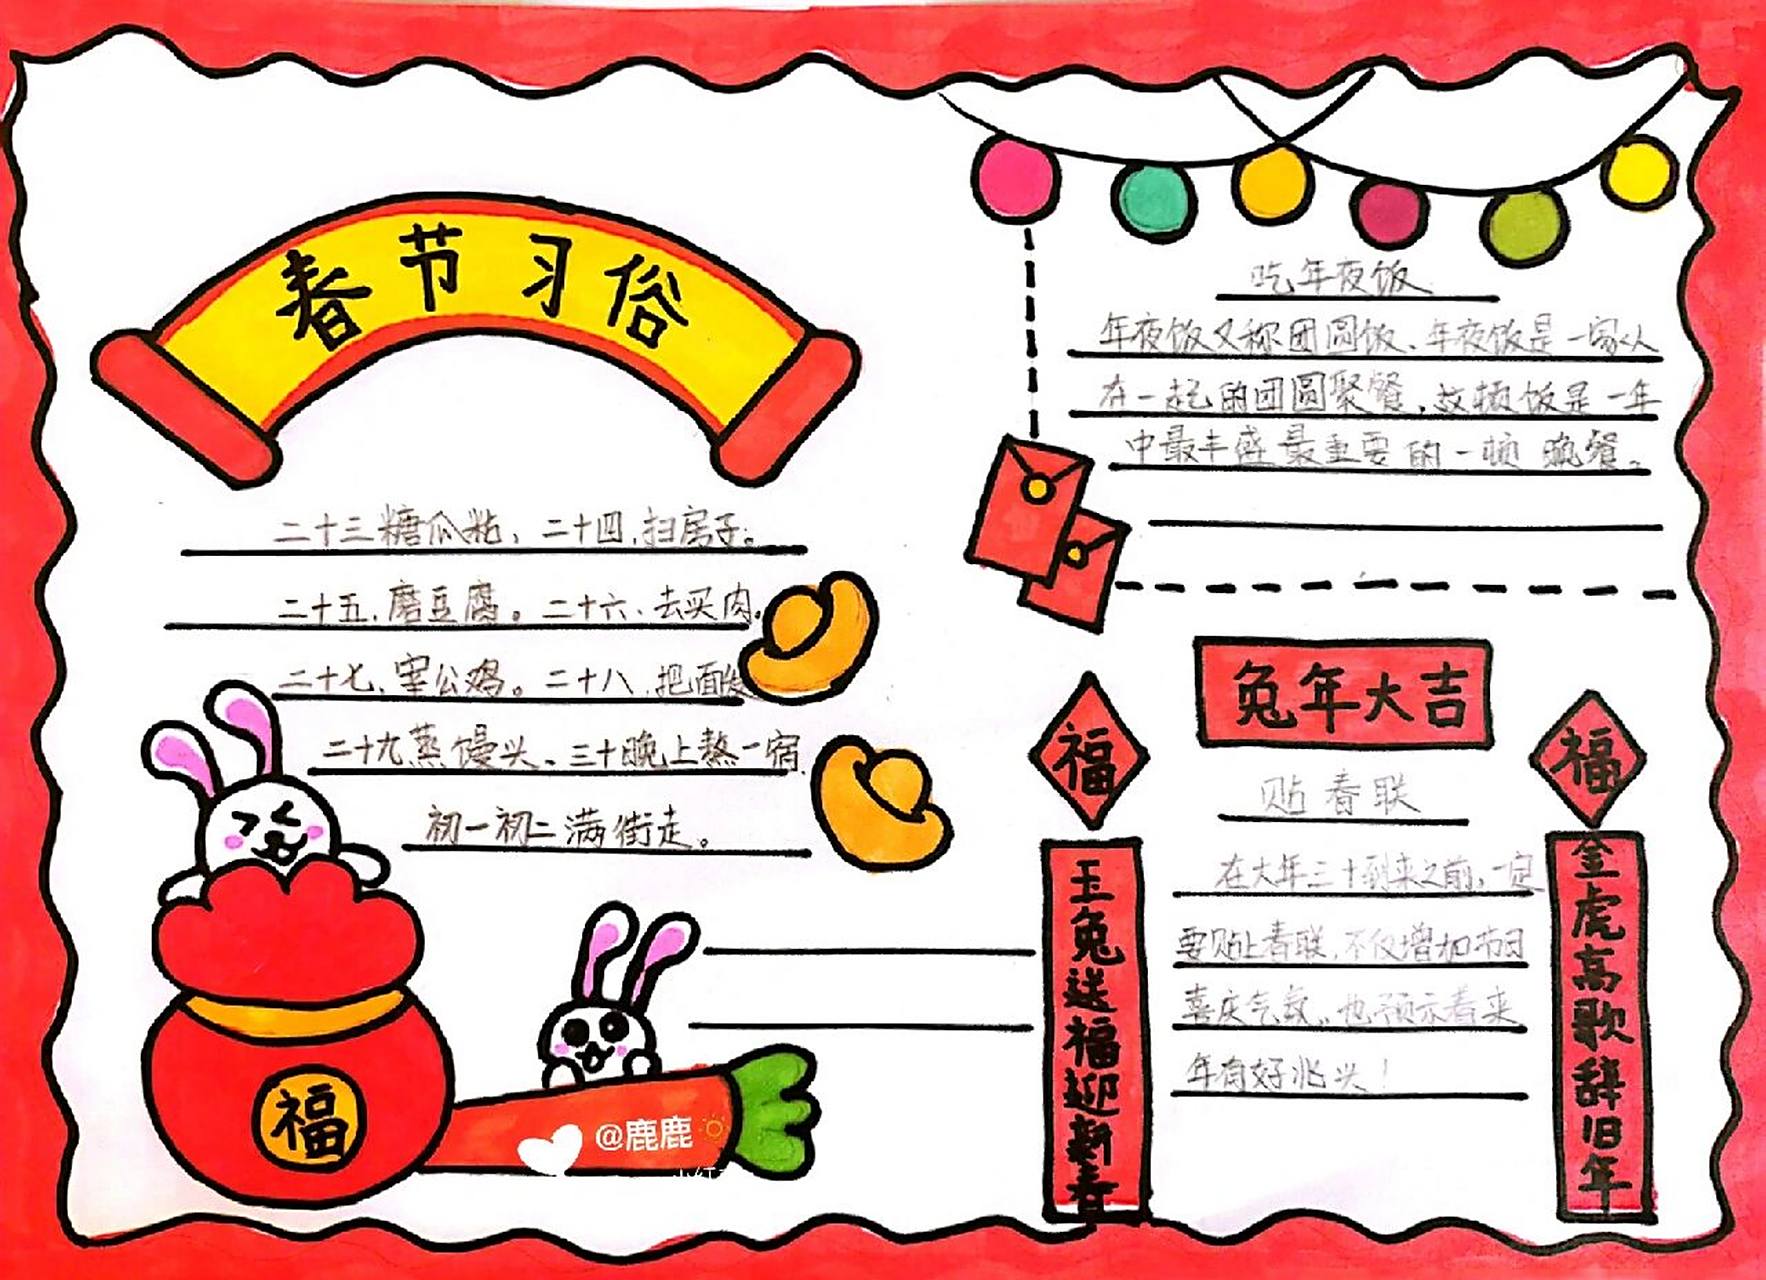 春节习俗
二十三糖瓜粘，二十四，扫房子。
二十五，磨豆腐。二十六，去买肉。
二十七，宰公鸡。二十八，把面发
二十九蒸馒头、三十晚上熬一宿.
初一初二满街走。
福
@鹿鹿
吃年夜饭
年夜饭又称团圆饭、年夜饭是一家人
在一起的团圆聚餐，这顿饭是一年
中最丰盛最重要的一顿晚餐。
兔年大吉
福
福
玉兔送福迎新春
金虎高歌辞旧年
贴春联
在大年三十到来之前，一定
要贴上春联，不仅增加节日
喜庆气氛，也预示着来
年有好兆头！